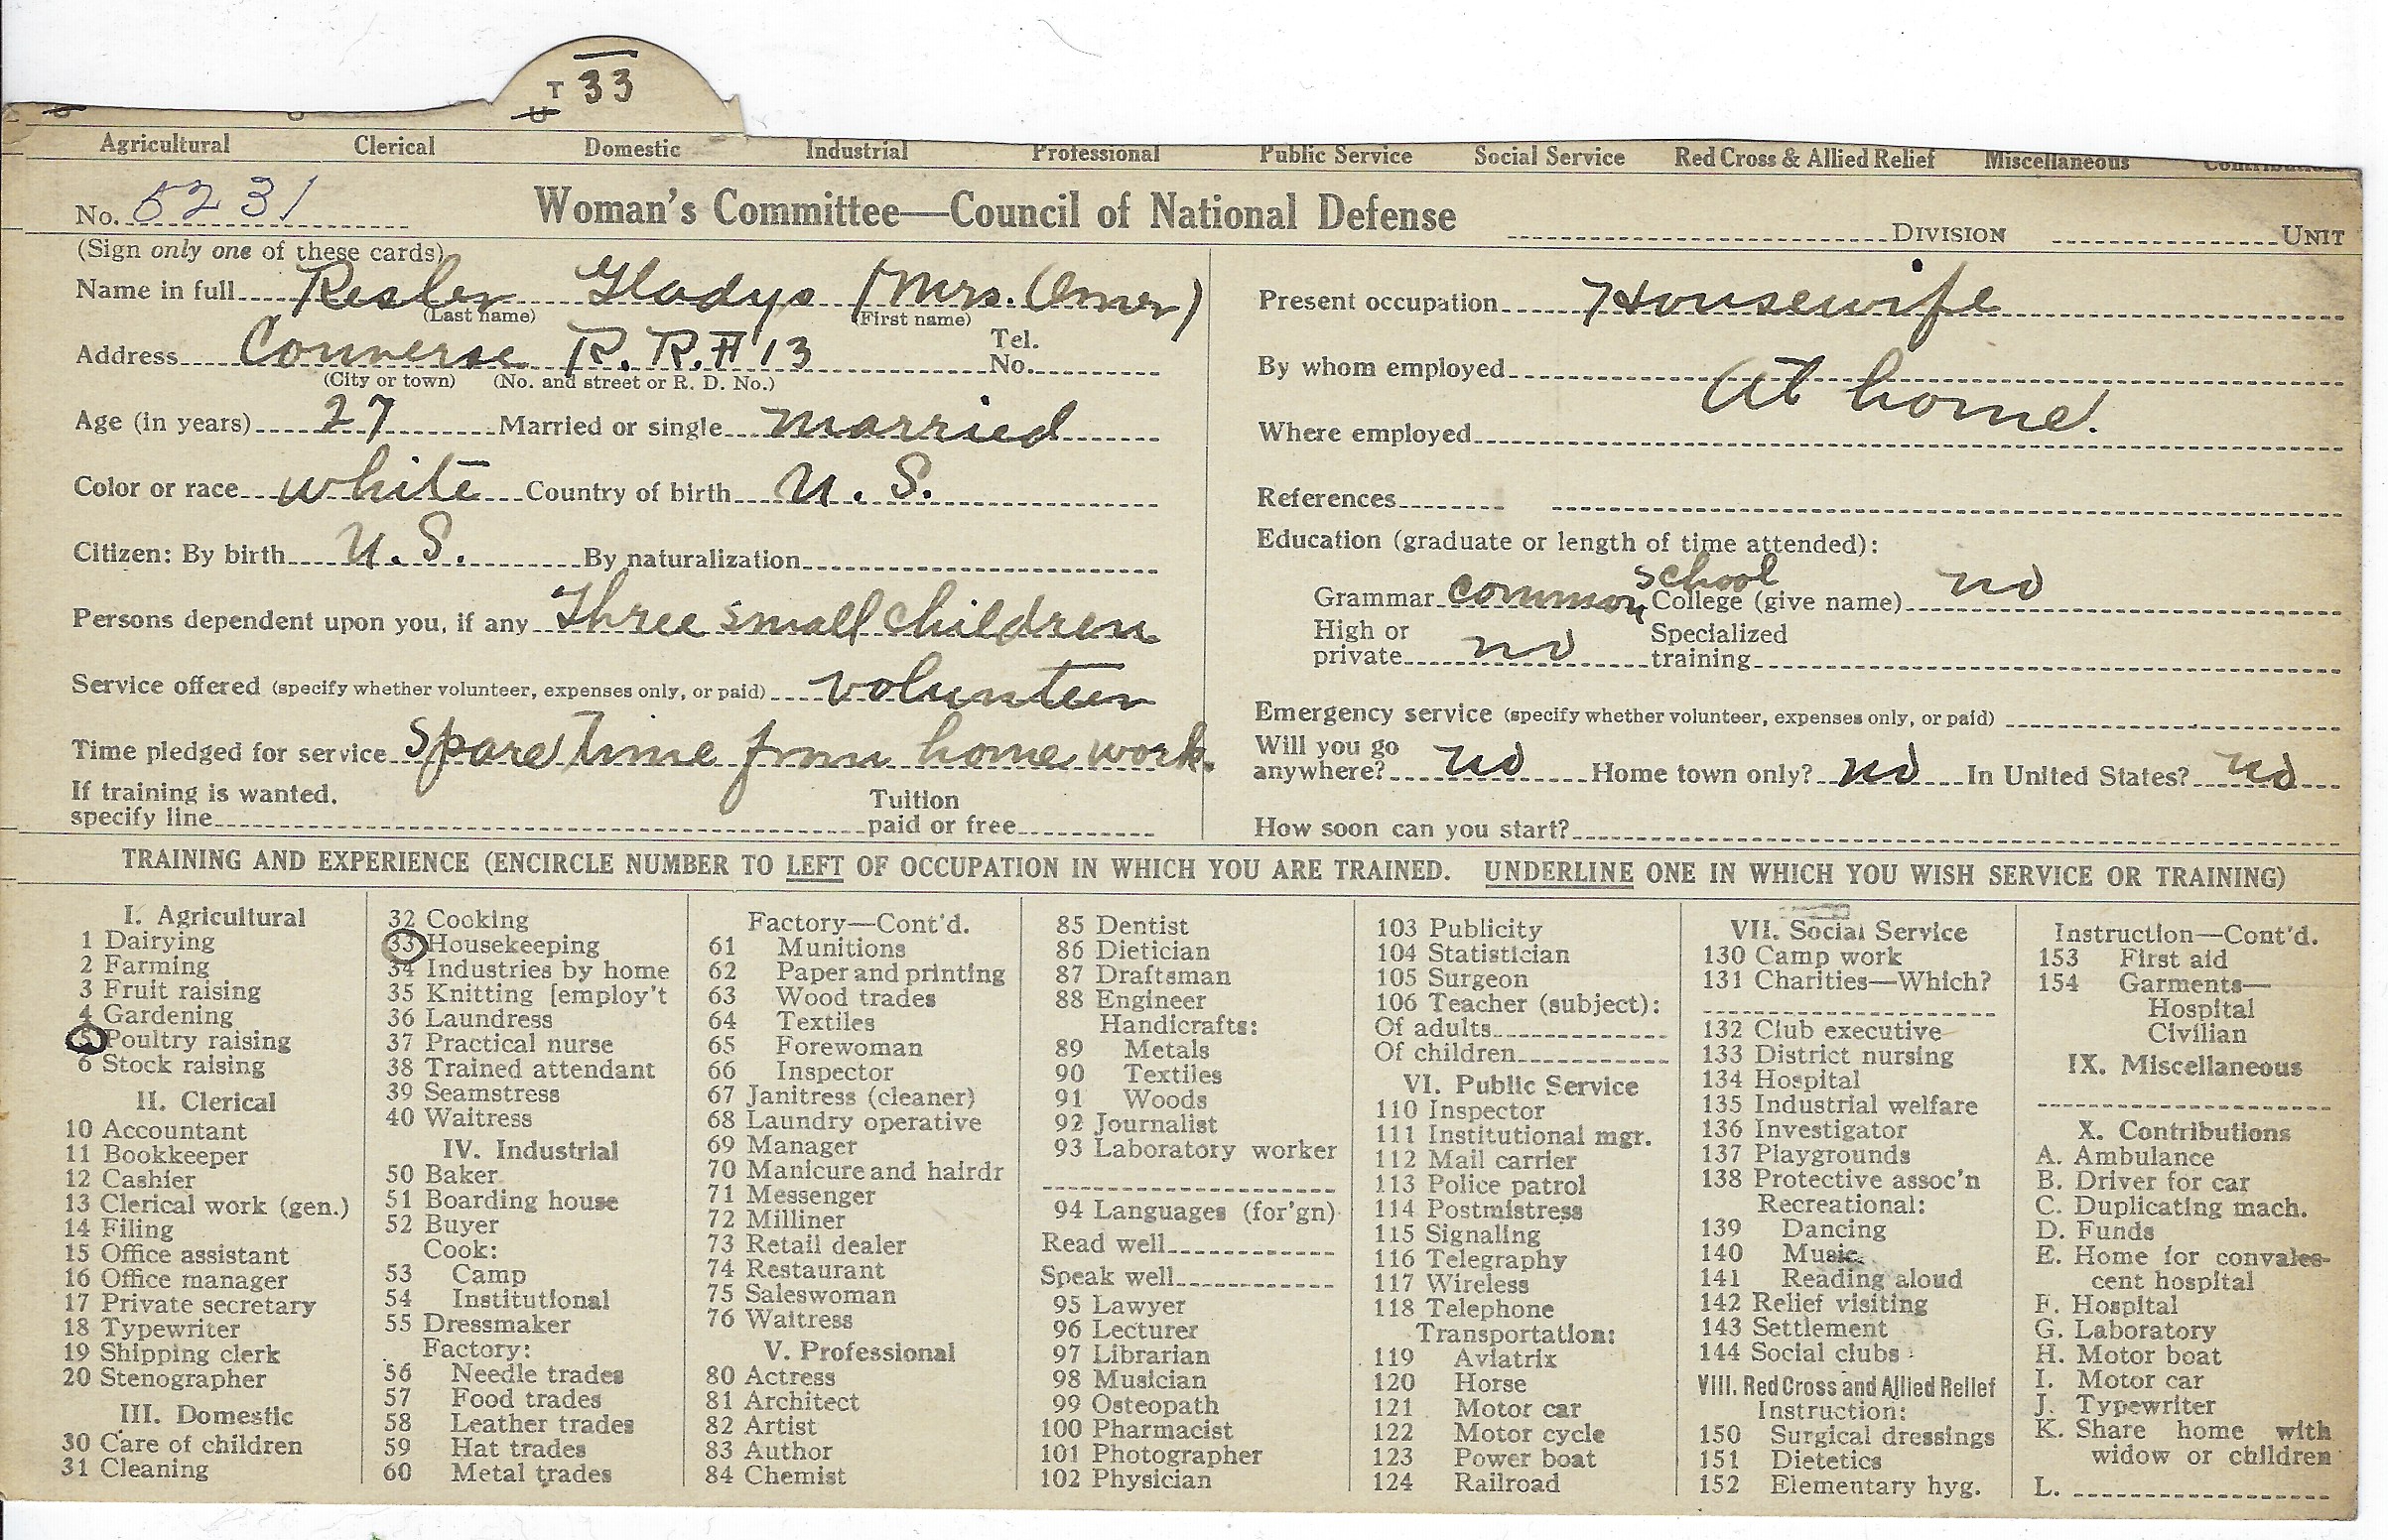 T 33
U
Agricultural Clerical Domestic Industrial Professional Public Service Social Service Red Cross & Allied Relief Miscellaneous Contributions
No. 5231 Woman's Committee—Council of National Defense DIVISION UNIT
(Sign only one of these cards)
Name in full Resler Gladys (Mrs. Omer)
(Last name) (First name)
Address Converse R. R. # 13 Tel. No.
(City or town) (No. and street or R. D. No.)
Age (in years) 27 Married or single married
Color or race white Country of birth U. S.
Citizen: By birth U. S. By naturalization
Persons dependent upon you, if any Three small children
Service offered (specify whether volunteer, expenses only, or paid) volunteer
Time pledged for service Spare Time from home work.
If training is wanted, specify line Tuition paid or free
Present occupation Housewife
By whom employed At home.
Where employed
References
Education (graduate or length of time attended):
Grammar common school College (give name) no
High or private no Specialized training
Emergency service (specify whether volunteer, expenses only, or paid)
Will you go anywhere? no Home town only? no In United States? no
How soon can you start?
TRAINING AND EXPERIENCE (ENCIRCLE NUMBER TO LEFT OF OCCUPATION IN WHICH YOU ARE TRAINED. UNDERLINE ONE IN WHICH YOU WISH SERVICE OR TRAINING)
I. Agricultural
1 Dairying
2 Farming
3 Fruit raising
4 Gardening
5 Poultry raising
6 Stock raising
II. Clerical
10 Accountant
11 Bookkeeper
12 Cashier
13 Clerical work (gen.)
14 Filing
15 Office assistant
16 Office manager
17 Private secretary
18 Typewriter
19 Shipping clerk
20 Stenographer
III. Domestic
30 Care of children
31 Cleaning
32 Cooking
33 Housekeeping
34 Industries by home
35 Knitting [employ't
36 Laundress
37 Practical nurse
38 Trained attendant
39 Seamstress
40 Waitress
IV. Industrial
50 Baker
51 Boarding house
52 Buyer
Cook:
53 Camp
54 Institutional
55 Dressmaker
Factory:
56 Needle trades
57 Food trades
58 Leather trades
59 Hat trades
60 Metal trades
Factory—Cont'd.
61 Munitions
62 Paper and printing
63 Wood trades
64 Textiles
65 Forewoman
66 Inspector
67 Janitress (cleaner)
68 Laundry operative
69 Manager
70 Manicure and hairdr
71 Messenger
72 Milliner
73 Retail dealer
74 Restaurant
75 Saleswoman
76 Waitress
V. Professional
80 Actress
81 Architect
82 Artist
83 Author
84 Chemist
85 Dentist
86 Dietician
87 Draftsman
88 Engineer
Handicrafts:
89 Metals
90 Textiles
91 Woods
92 Journalist
93 Laboratory worker
94 Languages (for'gn)
Read well
Speak well
95 Lawyer
96 Lecturer
97 Librarian
98 Musician
99 Osteopath
100 Pharmacist
101 Photographer
102 Physician
103 Publicity
104 Statistician
105 Surgeon
106 Teacher (subject):
Of adults
Of children
VI. Public Service
110 Inspector
111 Institutional mgr.
112 Mail carrier
113 Police patrol
114 Postmistress
115 Signaling
116 Telegraphy
117 Wireless
118 Telephone
Transportation:
119 Aviatrix
120 Horse
121 Motor car
122 Motor cycle
123 Power boat
124 Railroad
VII. Social Service
130 Camp work
131 Charities—Which?
132 Club executive
133 District nursing
134 Hospital
135 Industrial welfare
136 Investigator
137 Playgrounds
138 Protective assoc'n
Recreational:
139 Dancing
140 Music
141 Reading aloud
142 Relief visiting
143 Settlement
144 Social clubs
VIII. Red Cross and Allied Relief
Instruction:
150 Surgical dressings
151 Dietetics
152 Elementary hyg.
Instruction—Cont'd.
153 First aid
154 Garments—
Hospital
Civilian
IX. Miscellaneous
X. Contributions
A. Ambulance
B. Driver for car
C. Duplicating mach.
D. Funds
E. Home for convales-
cent hospital
F. Hospital
G. Laboratory
H. Motor boat
I. Motor car
J. Typewriter
K. Share home with
widow or children
L.